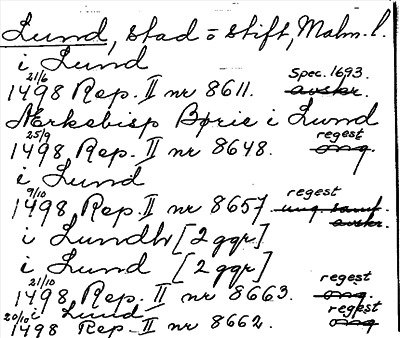 Lund, stad o stift, Malm. l.
i Lund
21/6 1498 Rep. II nr 8611. Spec. 1693. avskr.
Ærkebisp Børie i Lund
25/9 1498 Rep. II nr 8648. regest orig.
i Lund
9/10 1498 Rep. II nr 8657 regest ung. samt. avskr.
i Lundh [2 ggr]
i Lund [2 ggr]
21/10 1498 Rep. II nr 8663. regest orig.
i Lund
20/10 1498 Rep. II nr 8662. regest orig